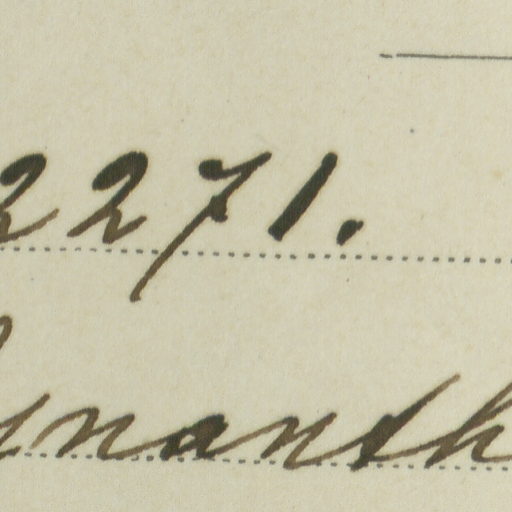 2271.
ynanth